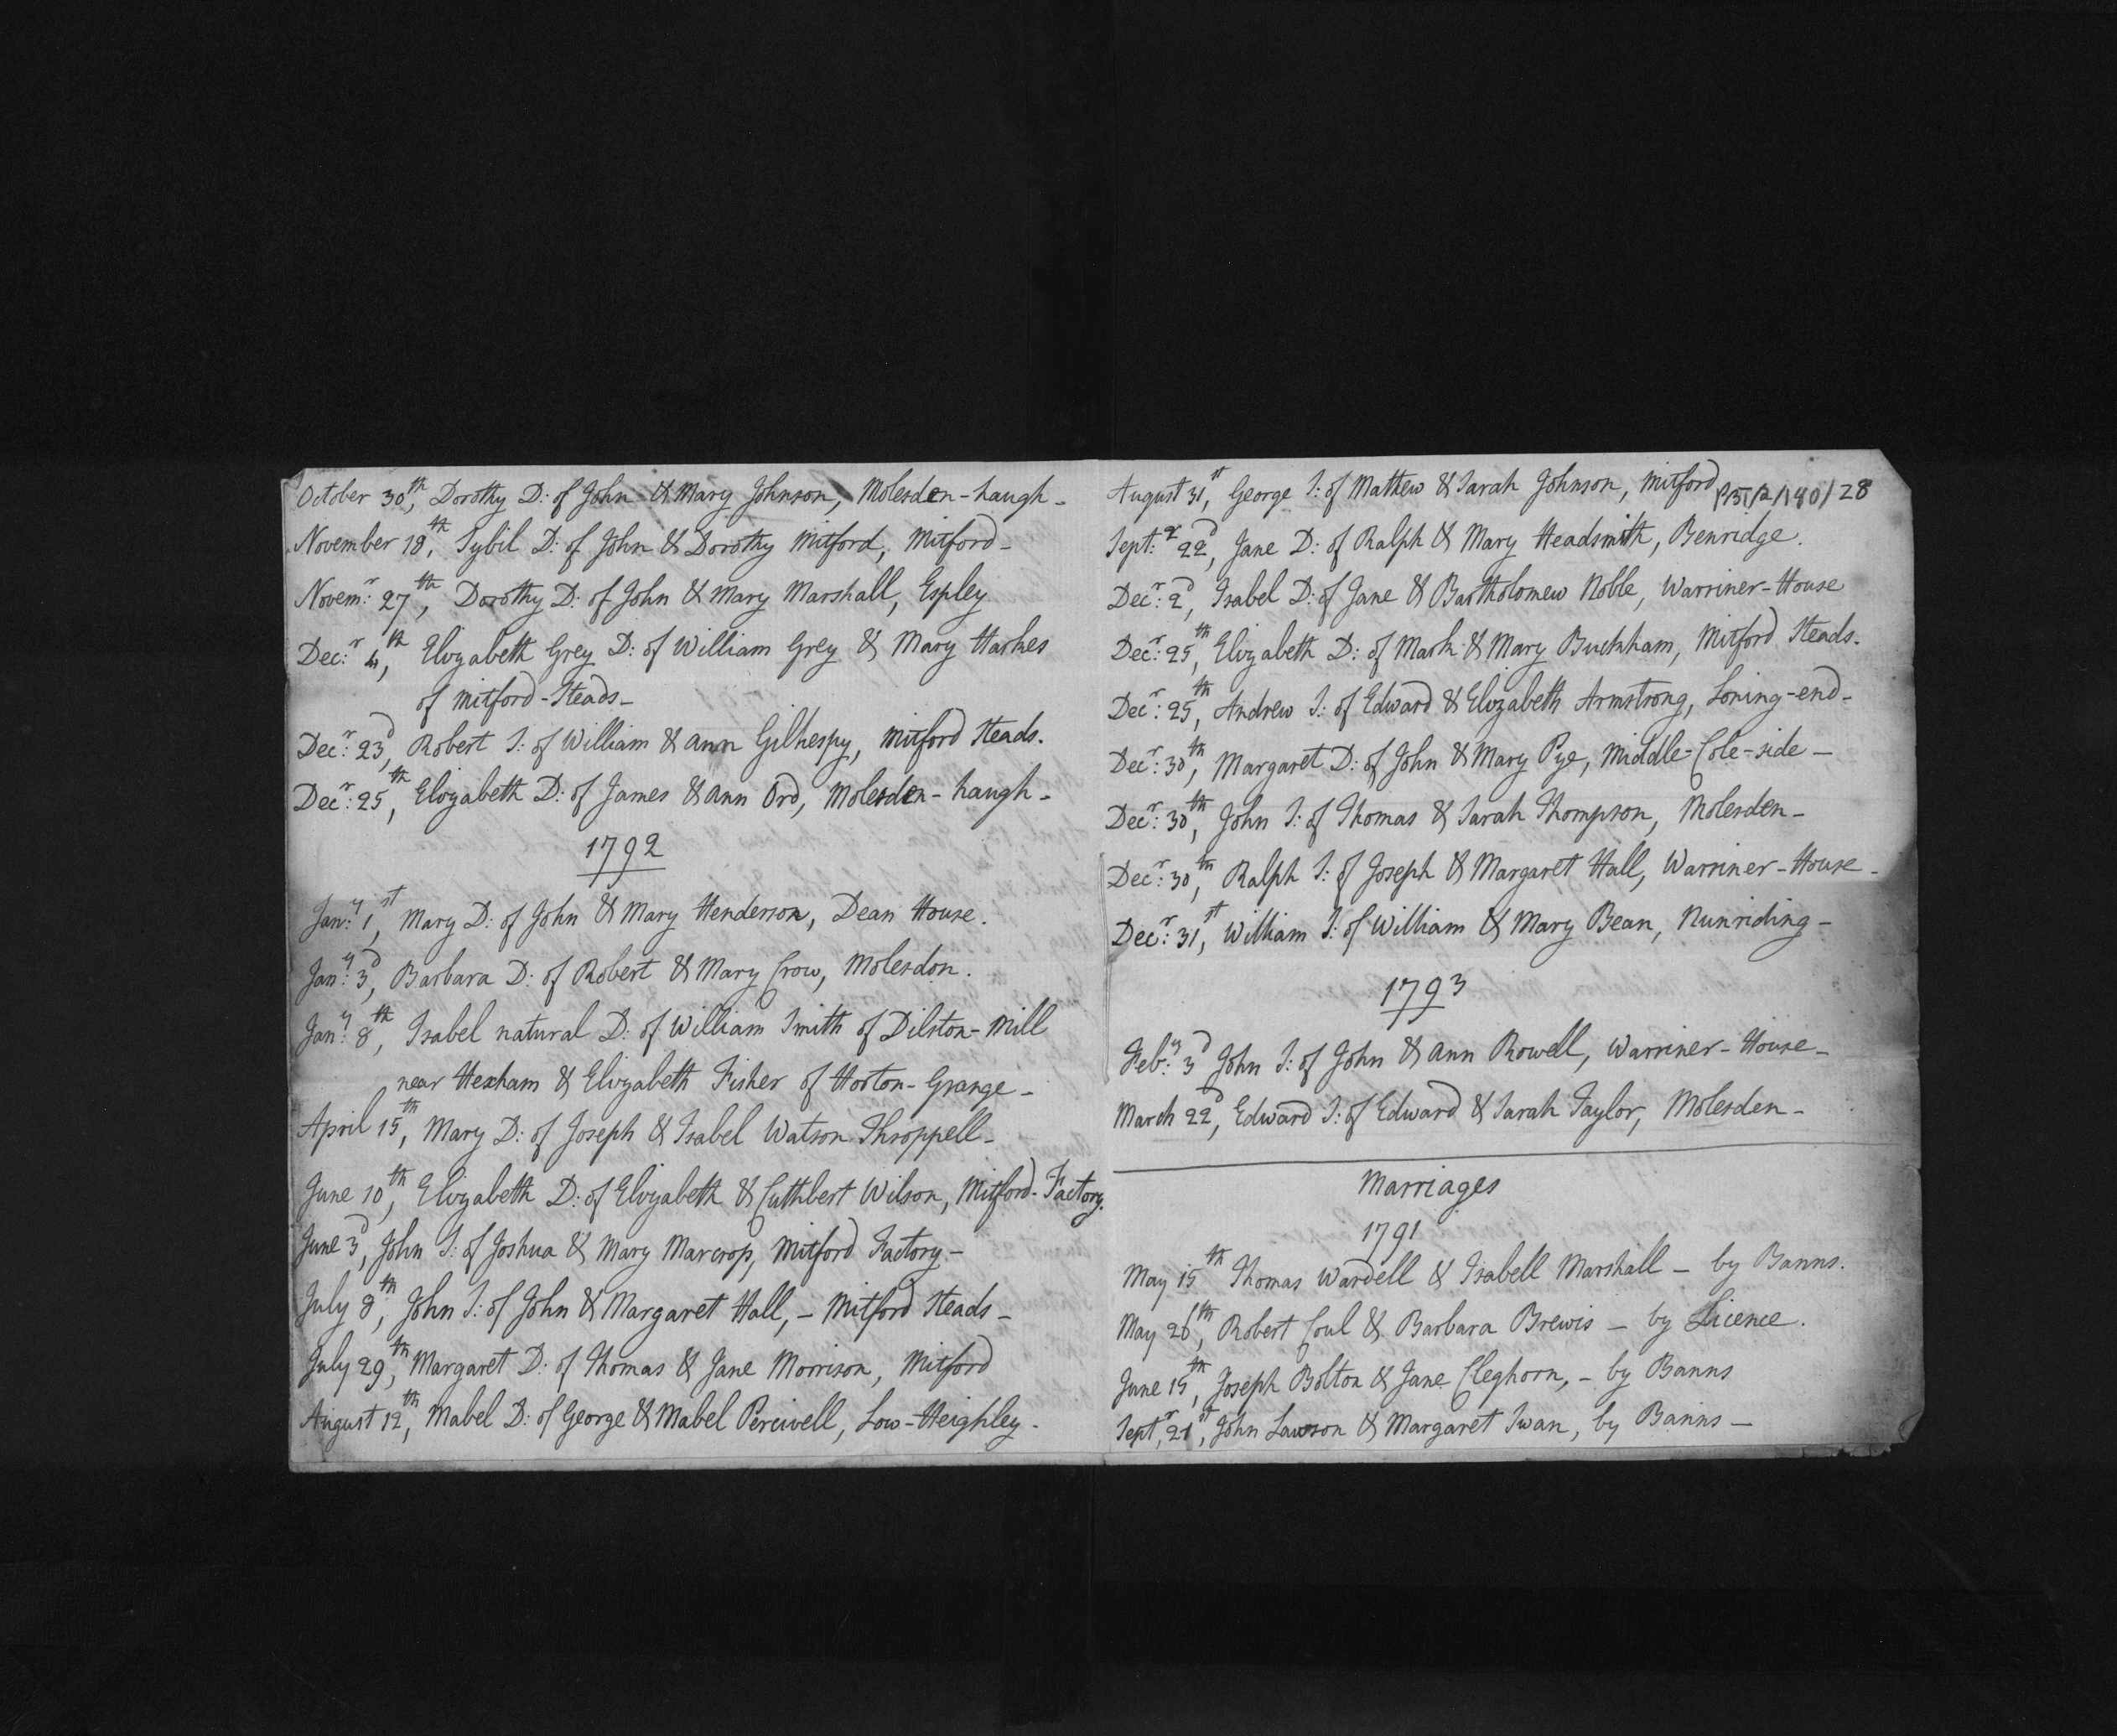 October 30th, Dorothy D: of John & Mary Johnson, Molesden-haugh-
November 18th, Sybil D: of John & Dorothy Mitford, Mitford-
Novemr: 27th, Dorothy D: of John & Mary Marshall, Espley
Decr: 4th, Elizabeth Grey D: of William Grey & Mary Harkes
of Mitford-Steads-
Decr: 23d, Robert S: of William & Ann Gilhespy, Mitford Steads.
Decr: 25th, Elizabeth D: of James & Ann Ord, Molesden-haugh-
1792
Jany: 1st, Mary D: of John & Mary Henderson, Dean House.
Jany: 3d, Barbara D: of Robert & Mary Crow, Molesdon.
Jany: 8th, Isabel natural D: of William Smith of Dilston-Mill
near Hexham & Elizabeth Fisher of Horton-Grange-
April 15th, Mary D: of Joseph & Isabel Watson Throppell-
June 10th, Elizabeth D: of Elizabeth & Cuthbert Wilson, Mitford-Factory.
June 3d, John S: of Joshua & Mary Marcrop, Mitford Factory-
July 8th, John S: of John & Margaret Hall, - Mitford Steads-
July 29th, Margaret D: of Thomas & Jane Morrison, Mitford
August 12th, Mabel D: of George & Mabel Percivell, Low-Heighley-
August 31st, George S: of Mathew & Sarah Johnson, Mitford
/2/180/28
Septr: 22d, Jane D: of Ralph & Mary Headsmith, Benridge.
Decr: 2d, Isabel D: of Jane & Bartholomew Noble, Warriner-House
Decr: 25th, Elizabeth D: of Mark & Mary Buckham, Mitford Steads-
Decr: 25th, Andrew S: of Edward & Elizabeth Armstrong, Loning-end-
Decr: 30th, Margaret D: of John & Mary Pye, Middle-Cole-side-
Decr: 30th, John S: of Thomas & Sarah Thompson, Molesden-
Decr: 30th, Ralph S: of Joseph & Margaret Hall, Warriner-House-
Decr: 31st, William S: of William & Mary Bean, Nunriding-
1793
Feby: 3d John S: of John & Ann Rowell, Warriner-House-
March 22d, Edward S: of Edward & Sarah Taylor, Molesden-
Marriages
1791
May 15th Thomas Wardell & Isabell Marshall - by Banns.
May 26th, Robert Coul & Barbara Brewis - by Licence.
June 15th, Joseph Bolton & Jane Cleghorn, - by Banns
Septr, 21st, John Lawson & Margaret Swan, by Banns-